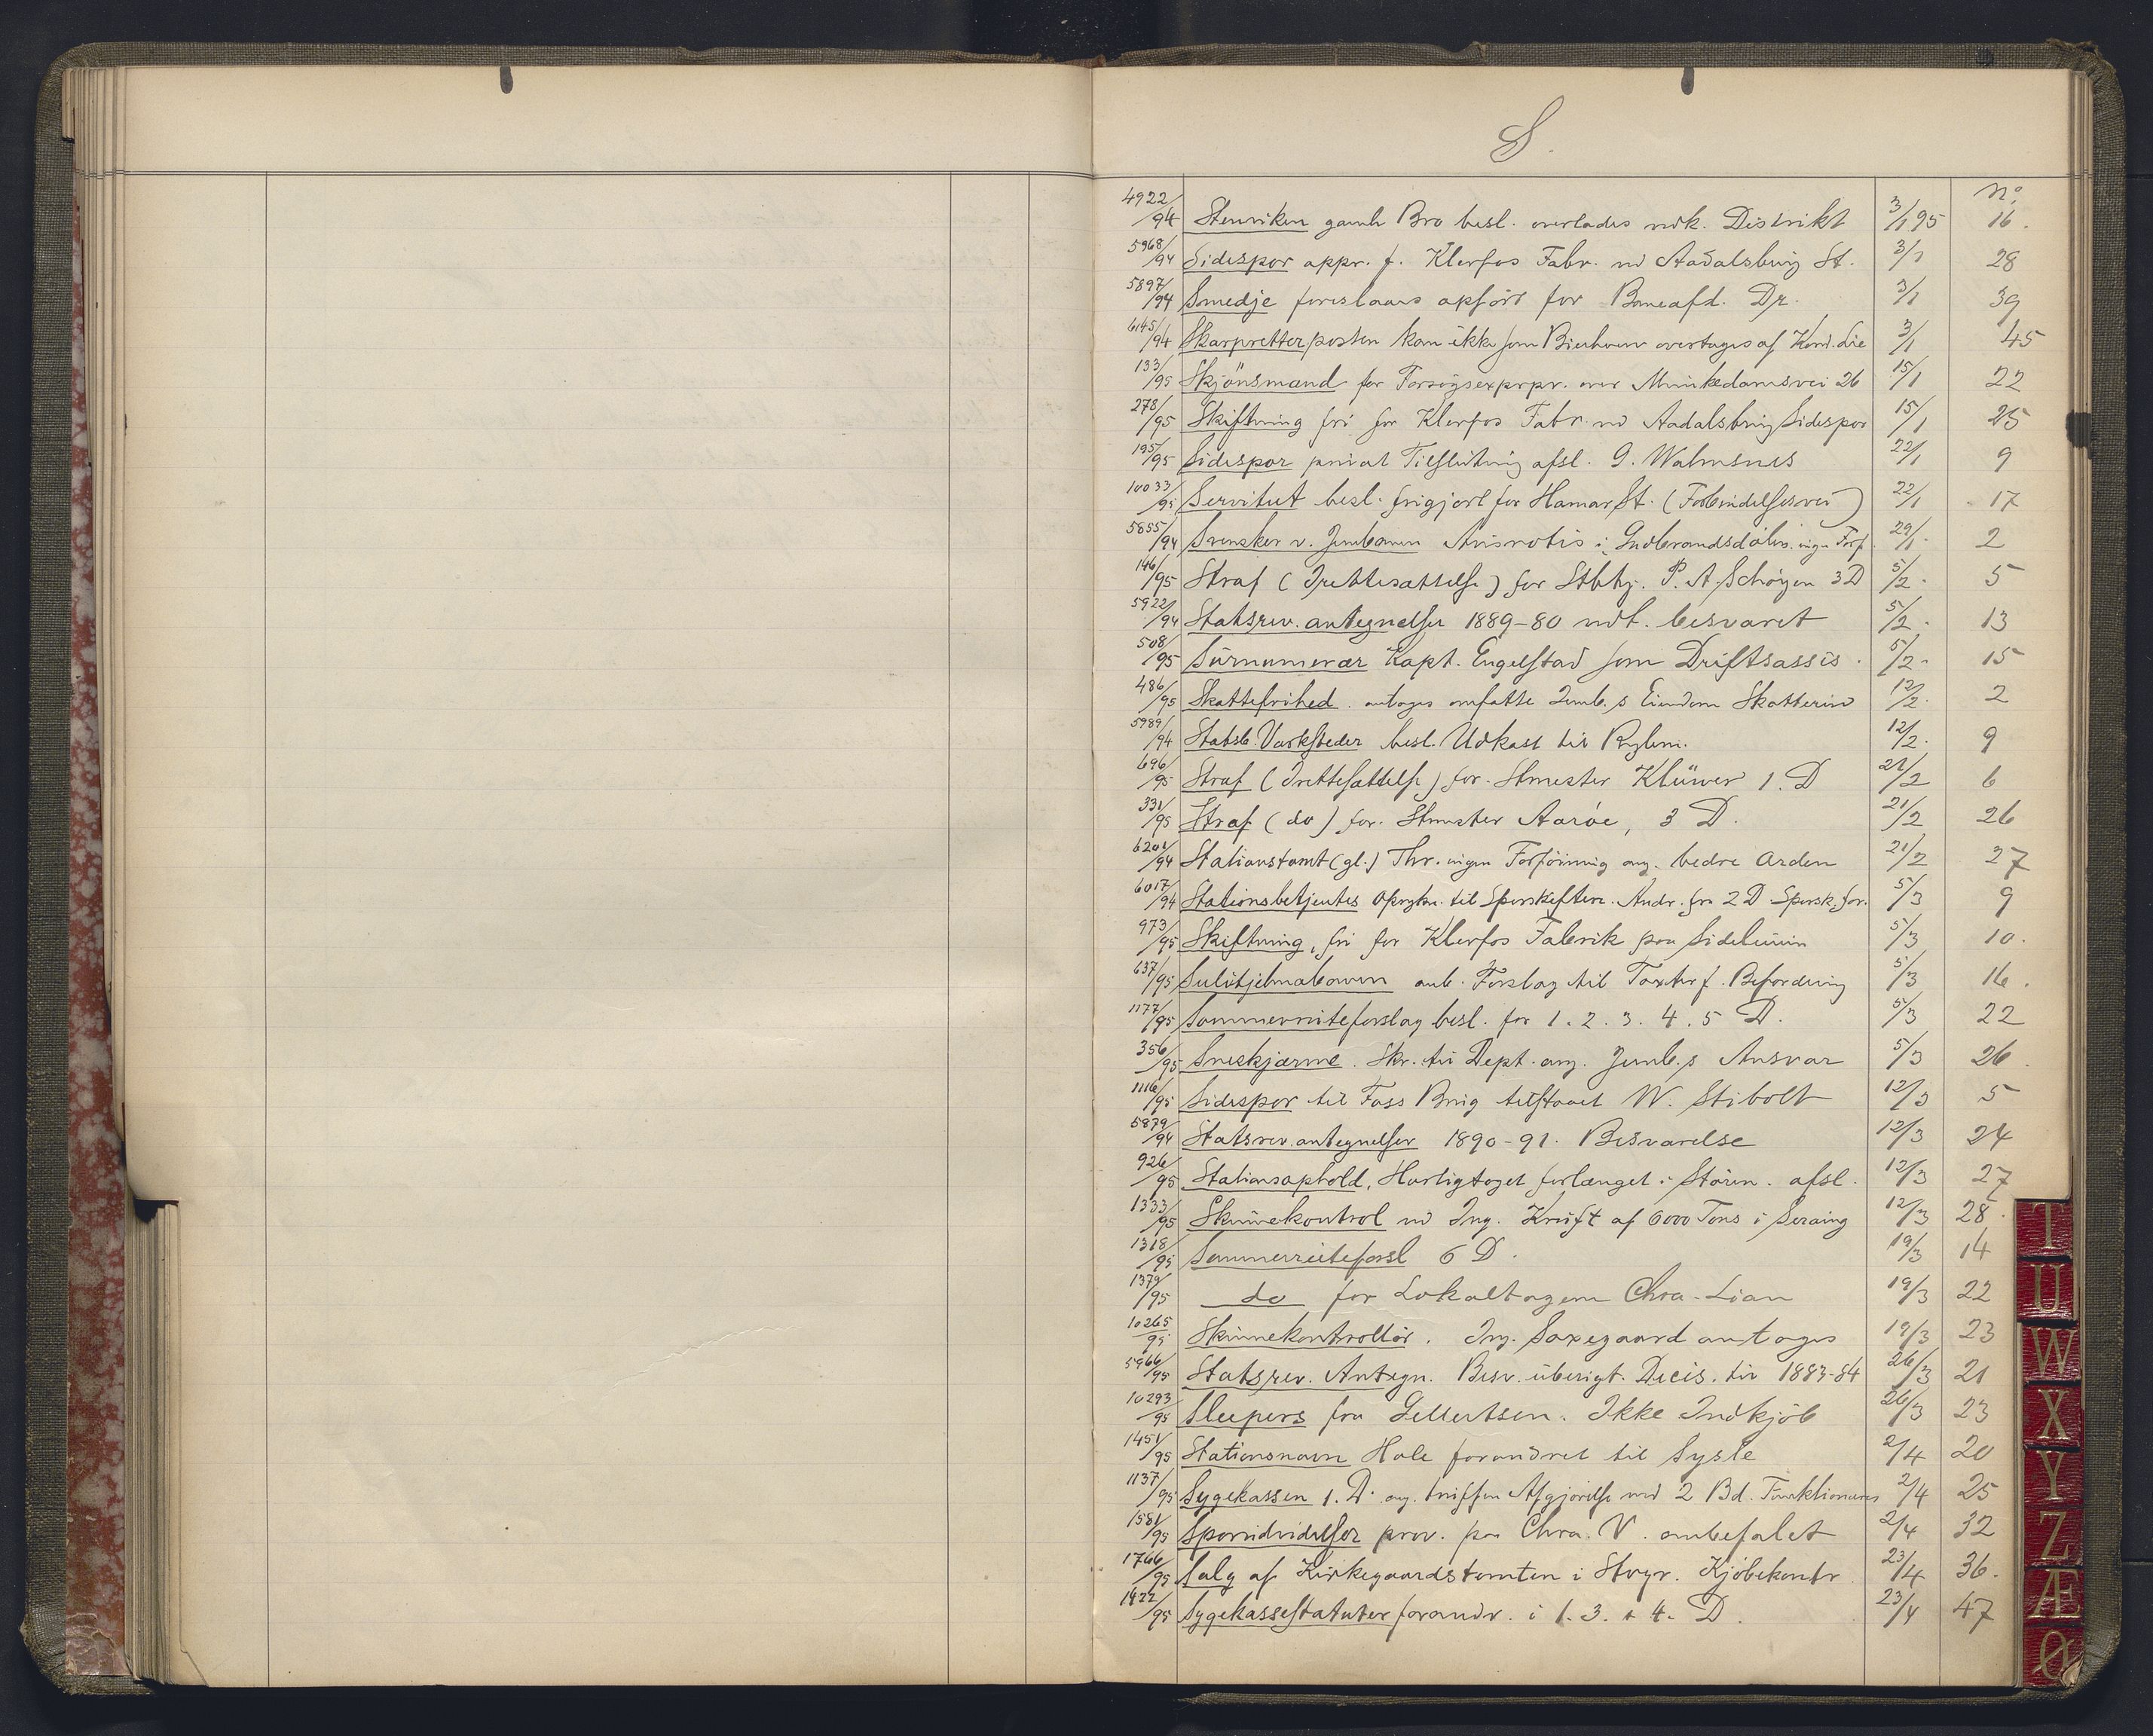 S.
No.
4922/94 Stenviken gamle Bro besl. overlades vedk. Distrikt 3/1 95 16.
5968/94 Sidespor appr. f. Klevfos Fabr. ved Aadalsbrug St. 3/1 28
5897/94 Smedje foreslaaes opført for Baneafd. Dr. 3/1 39
6145/94 Skarpretterposten kan ikke som Bierhverv overtages af Kond. Lie 3/1 45
133/95 Skjönsmænd for Forsøgsexprpr. over Munkedamsvei 26 15/1 22
278/95 Skiftning fri for Klevfos Fabr. ved Aadalsbrug Sidespor 15/1 25
195/95 Sidespor privat Tilslutning afsl. G. Walmsnæs 22/1 9
10033/95 Servitut besl. frigjort for Hamar St. (Forbindelsesvei) 22/1 17
5855/94 Svensker v. Jernbanen Avisnotis i Gudbrandsdølen. ingen Forf. 29/1 2
146/95 Straf (Irettesættelse) for Stbtj. P. A. Schøyen 3 D 5/2 5
5922/94 Statsrev. antegnelser 1889-80 vedt. besvaret 5/2 13
508/95 Surnumerær Kapt. Engelstad som Driftsassis. 5/2 15
486/95 Skattefrihed antages omfatte Jernb.s Eiendom Skatterin 12/2 2
5989/94 Statsb. Værksteder besl. Udkast til Reglem. 12/2 9
696/95 Straf (Irettesættelse) for Stmester Klüwer 1. D 21/2 6
331/95 Straf (do) for Stmester Aarøe, 3 D. 21/2 26
6201/94 Stationstomt (gl.) Thr. ingen Forføining ang. bedre Orden 21/2 27
6017/94 Stationsbetjentes Oprykn. til Sporskiftere. Andr. fra 2 D Spersk. for. 5/3 9
973/95 Skiftning, fri for Klevfos Fabrik paa Sidelinien 5/3 10.
637/95 Sulitjelmabanen anb. Forslag til Taxter f. Befordring 5/3 16.
1177/95 Sommerruteforslag besl. for 1. 2. 3. 4. 5 D. 5/3 22
356/95 Sneskjærme. Skr. til Dept. ang. Jernb.s Ansvar 5/3 26
1116/95 Sidespor til Foss Brug tilstaaet W. Stibolt 12/3 5
5879/94 Statsrev. antegnelser 1890-91. Besvarelse 12/3 24
926/95 Stationsophold, Hurtigtoget forlænget i Støren. afsl. 12/3 27
1333/95 Skinnekontrol ved Ing. Kruft af 6000 Tons i Seraing 12/3 28.
1318/95 Sommerruteforsl 6 D. 19/3 14
1379/95 do for Lokaltogene Chra-Lian 19/3 22
10265/95 Skinnekontrollør. Ing. Saxegaard antages 19/3 23
5966/95 Statsrev. Antegn. Besv. übersigt. Decis. til 1883-84 26/3 21
10293/95 Sleepers fra Gellertsen. Ikke Indkjøb 26/3 23
1451/95 Stationsnavn Hole forandret til Sysle 2/4 20
1137/95 Sygekassen 1. D. ang. truffen Afgjørelse ved 2 Bd. Funktionærer 2/4 25
1581/95 Sporudvidelser prov. paa Chra. V. anbefalet 2/4 32
1766/95 Salg af Kirkegaardstomten i Stvgr. Kjøbekontr 23/4 36.
1422/95 Sygekassestatuter forandr. i 1. 3. + 4. D. 23/4 47
T
U
W
X
Y
Z
Æ
Ø